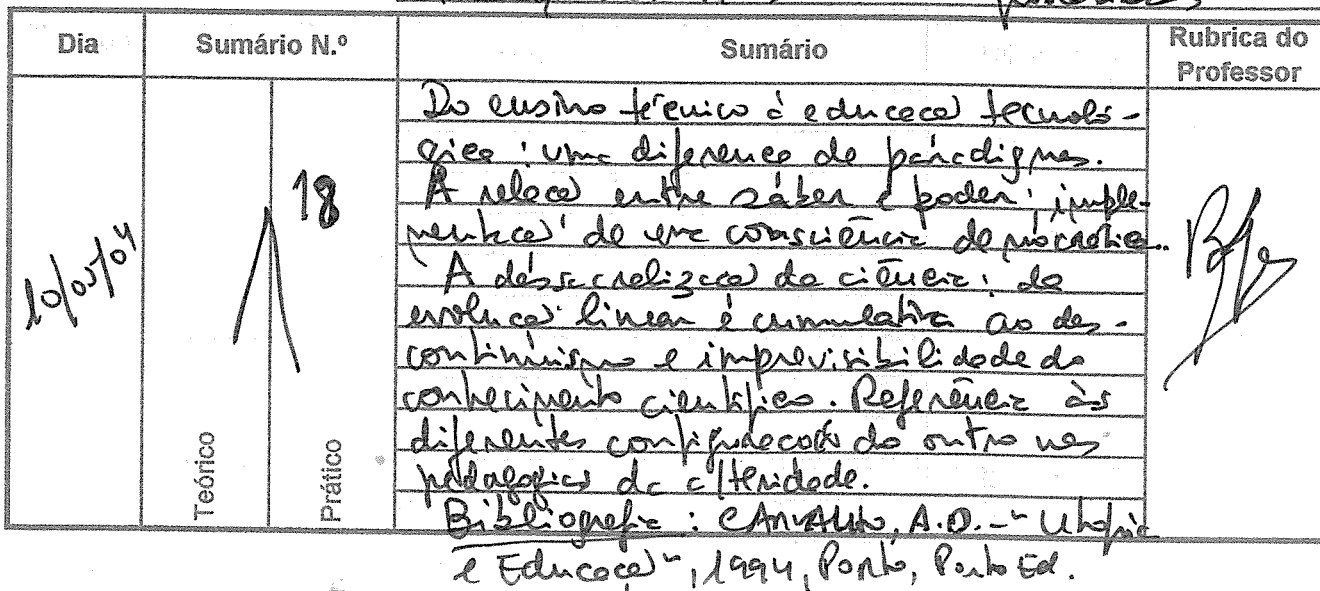 Dia Sumário N.º Sumário Rubrica do Professor
10/05/04
18
Teórico
Prático
Do ensino técnico à educação tecnoló-
gica: uma diferença de paradigmas.
A relação entre saber e poder: imple-
mentação de uma consciência democrática.
A dessacralização da ciência: da
evolução linear e cumulativa ao des-
continuismo e imprevisibilidade do
conhecimento científico. Referência às
diferentes configurações do outro nas
pedagogias da alteridade.
Bibliografia: CARVALHO, A.D. - "Utopia
e Educação", 1994, Porto, Porto Ed.